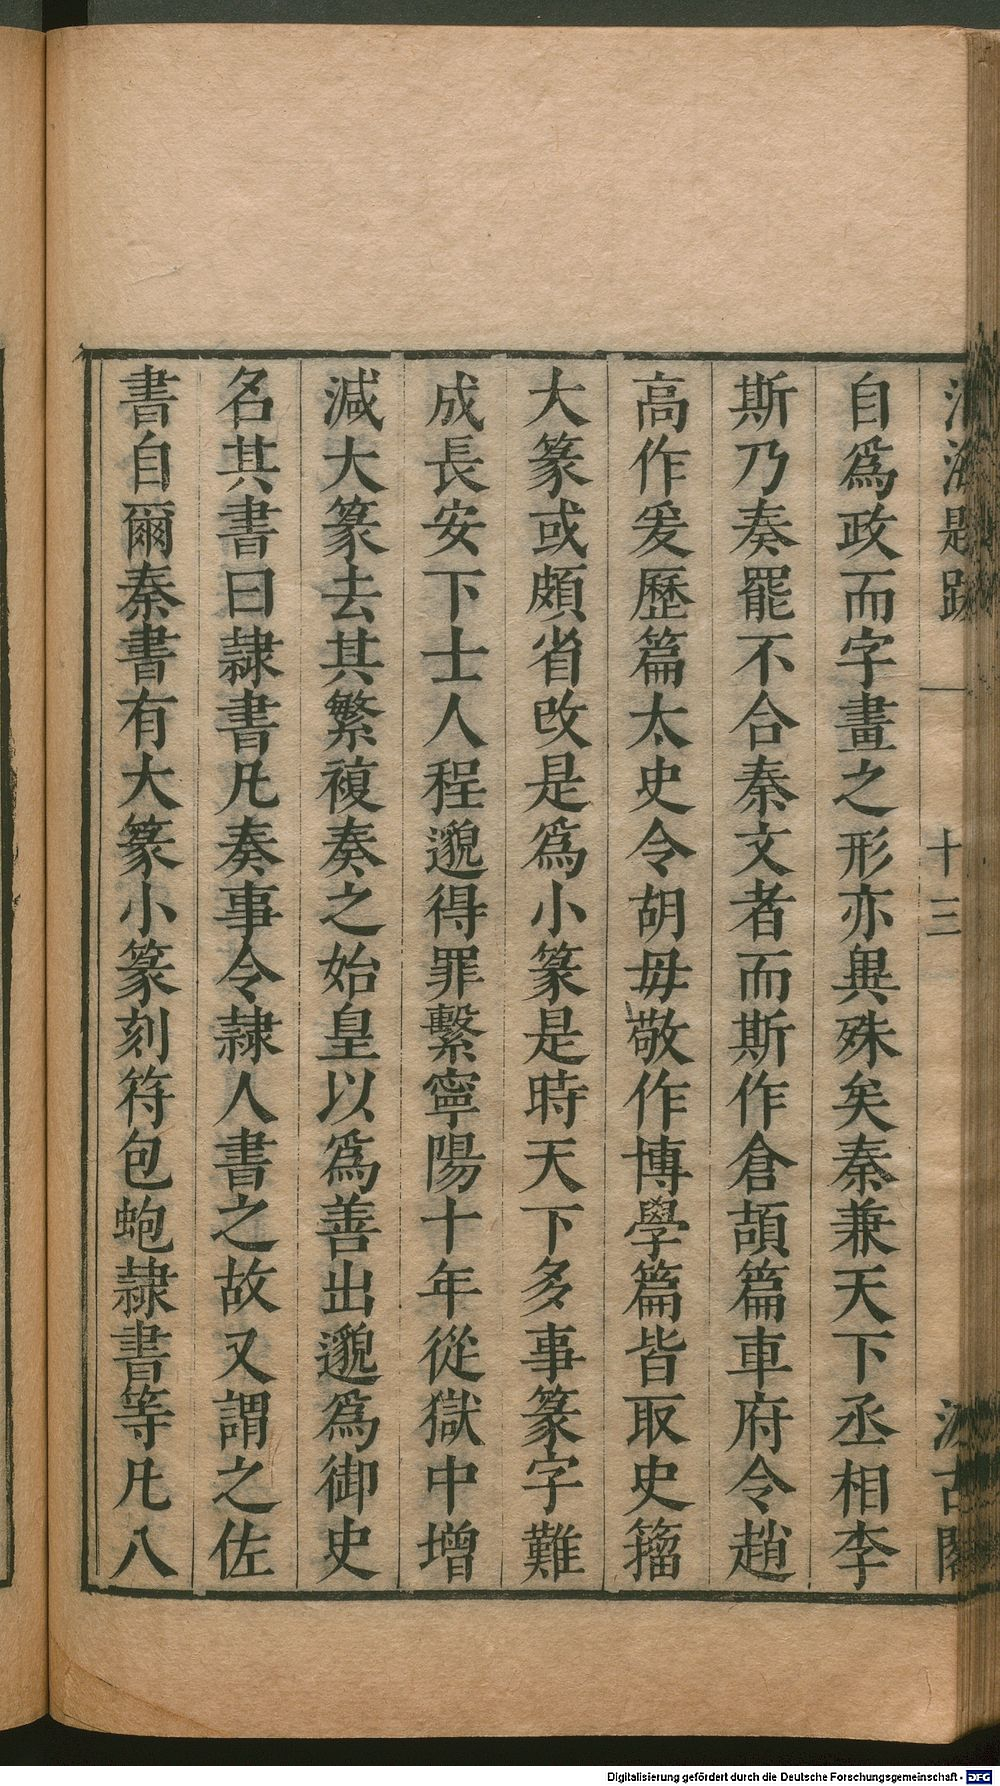 十三
自爲政而字畫之形亦與殊矣秦兼天下丞相李
斯乃奏罷不合秦文者而斯作倉頡篇車府令趙
高作爰歷篇太史令胡毋敬作博學篇皆取史籀
大篆或頗省改是爲小篆是時天下多事篆字難
成長安下士人程邈得罪繫寧陽十年從獄中增
減大篆去其繁複奏之始皇以爲善出邈爲御史
名其書曰隷書凡奏事令隷人書之故又謂之佐
書自爾秦書有大篆小篆刻符包蚫隷書等凡八
Digitalisierung gefördert durch die Deutsche Forschungsgemeinschaft - DFG